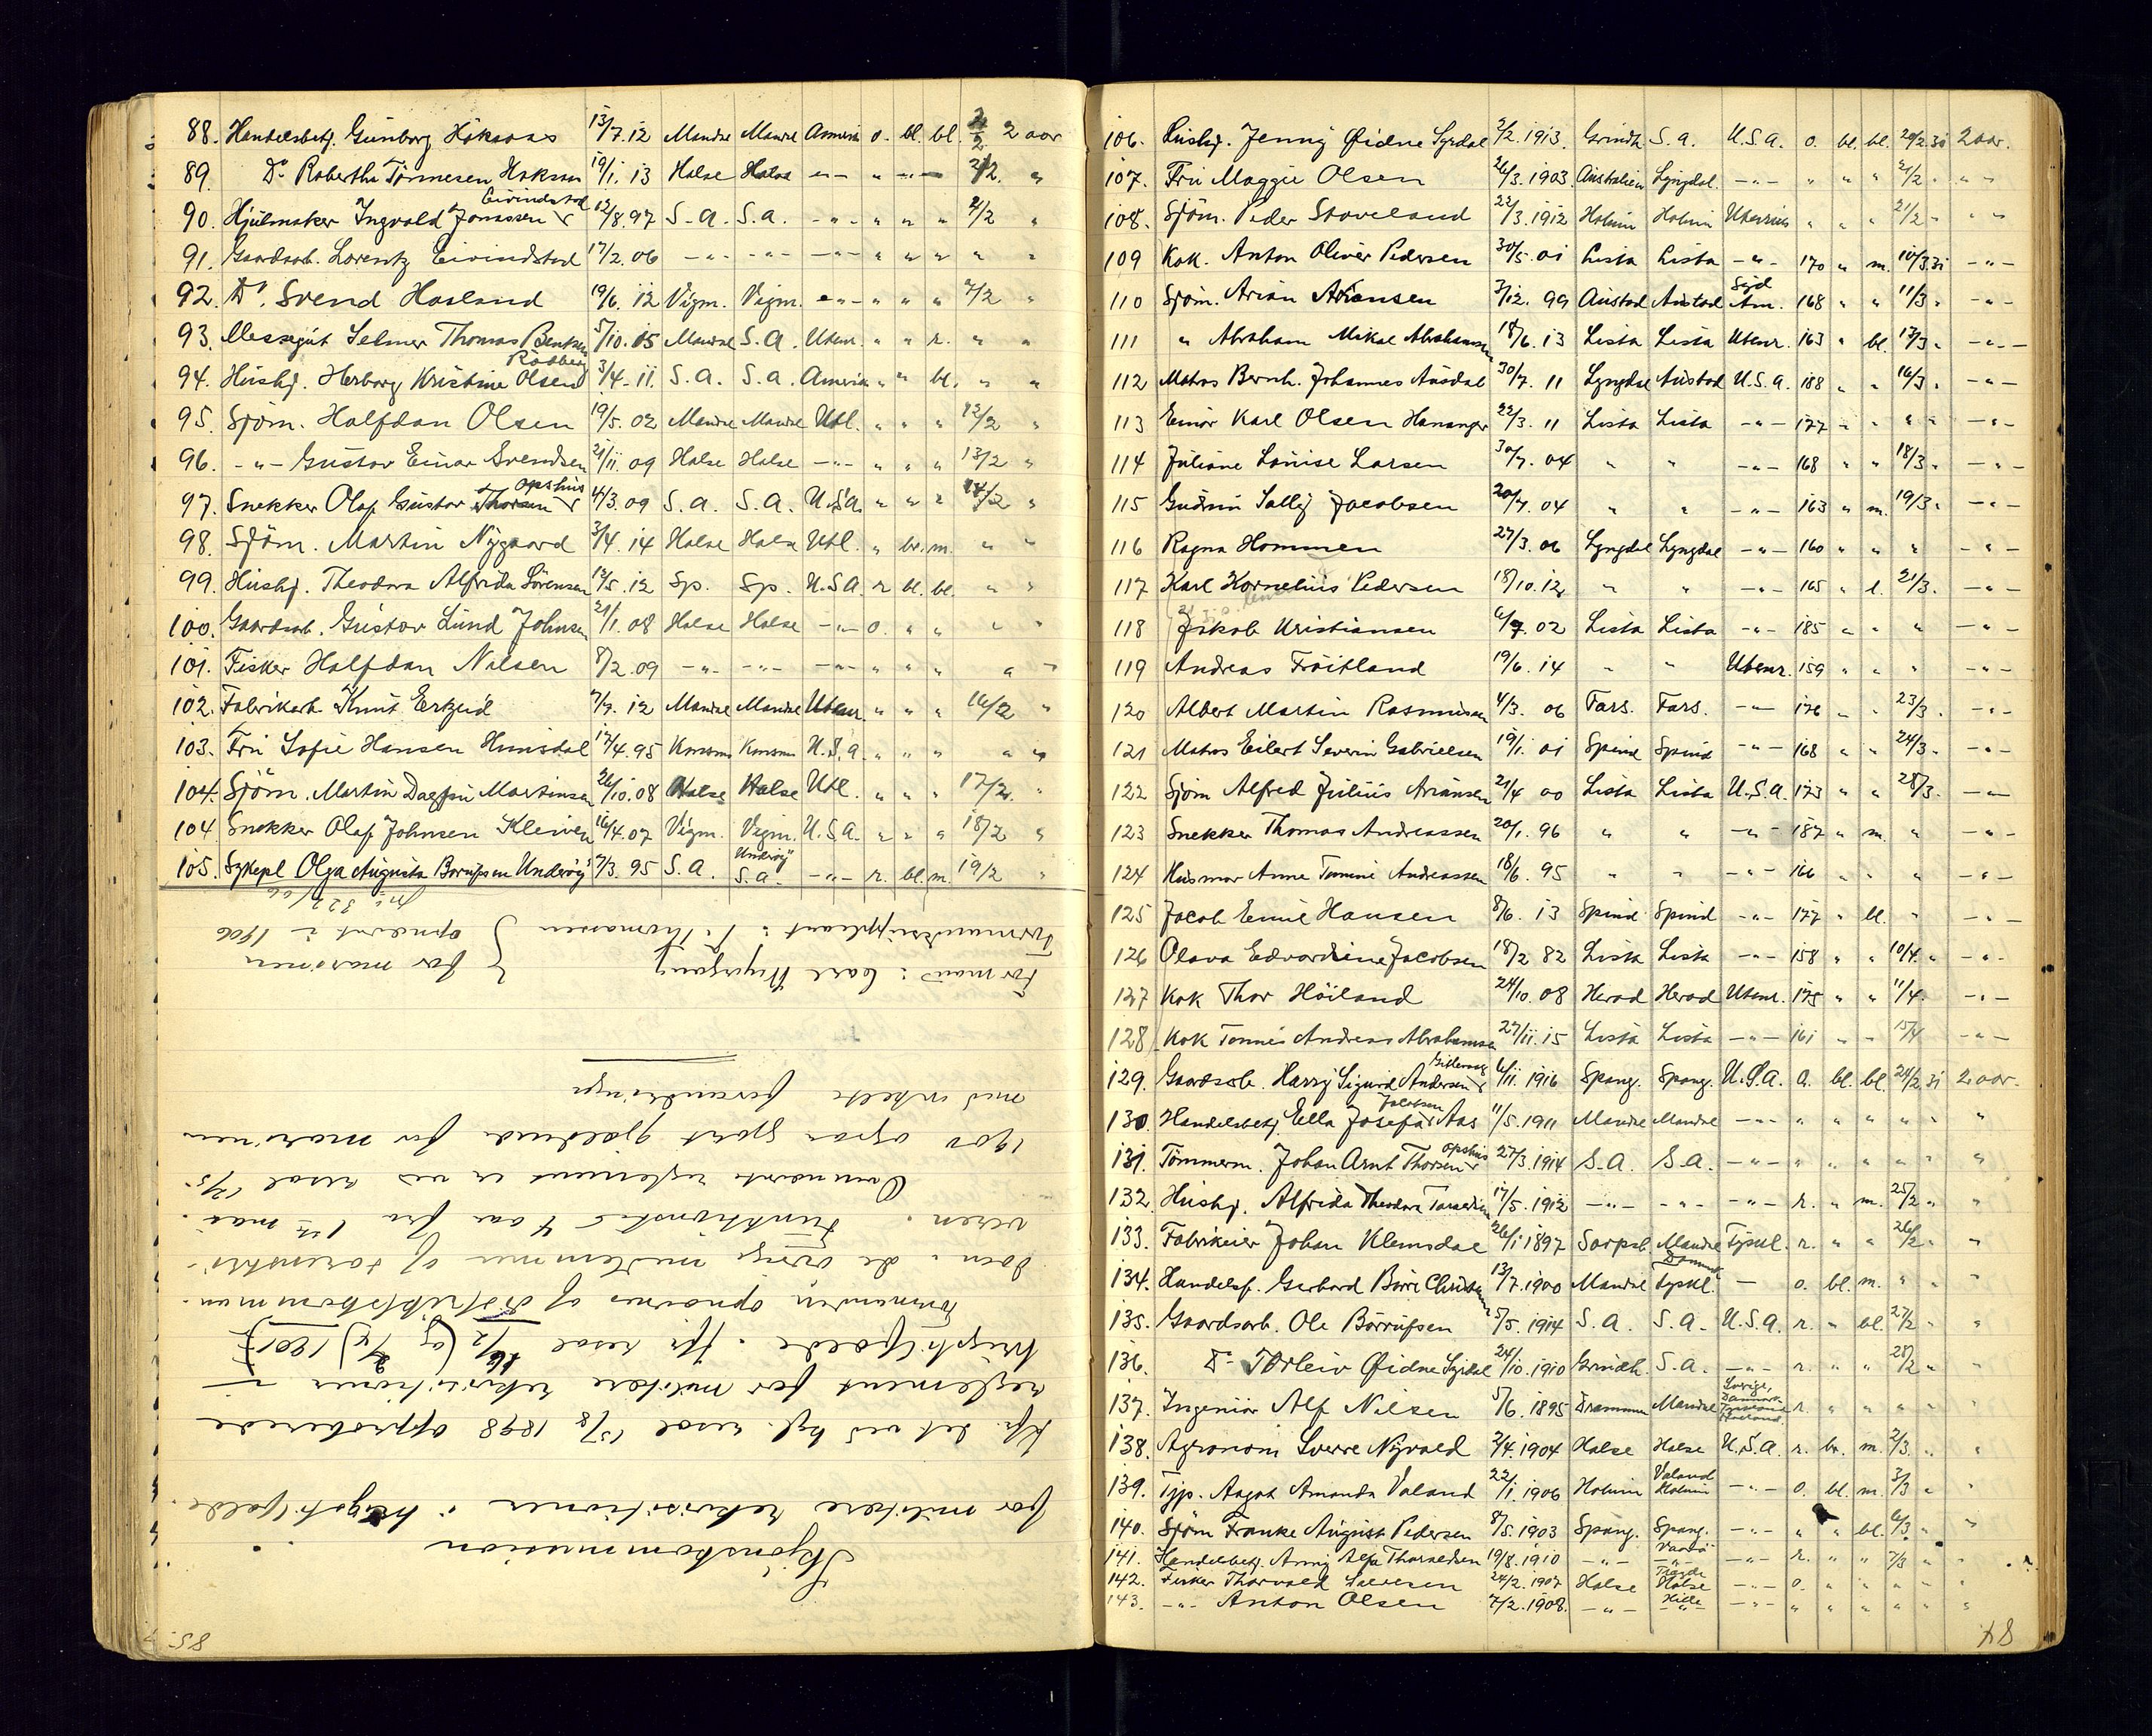 88. Handelsbetj. Gunborg Håksaas 13/7.12 Mandal Mandal Amerika o. bl. bl. 2/2 2 aar
89. Do Roberthe Tønnesen Hokson 19/1.13 Halse Halse -"- " -"- 2/2. "
Eivindstad
90. Hjulmaker Ingvald Jonassen 12/8.97 S.a. S.a. -"- " " " 2/2 "
91. Gaardsarb. Lorentz Eivindstad 17/2.06 -"- -"- -"- " " " " "
92. Do. Svend Hasland 19/6.12 Vigm. Vigm. -"- " " " 7/2 "
93. Messegut Selmer Thomas Bentsen 5/10.15 Mandal S.A. Utenr. " " r. " "
Rødberg
94. Hushj. Herborg Kristine Olsen 3/4.11. S.a. S.a. Amerika " " bl. " "
95. Sjöm. Halfdan Olsen 19/5.02 Mandal Mandal Utl. " " " 12/2 "
96. -"- Gustav Einar Svendsen 21/11.09 Halse Halse -"- " " " 13/2 "
Opshus
97. Snekker Olaf Gustav Thorsen 4/3.09 S.a. S.A. U.S.A. " " " 14/2 "
98. Sjöm. Martin Nygaard 3/4.14 Halse Halse Utl. " br. m. " "
99. Hushj. Theodora Alfrida Sørensen 12/5.12 Sp. Sp. U.S.A. r bl. bl. " "
100. Gaardsarb. Gustav Lund Johnsen 21/1.08 Halse Halse -"- o. " " " "
101. Fisker Halfdan Nilsen 8/2.09 -"- -"- -"- " " " " "
102. Fabrikarb. Knut Ertzeid 7/7.12 Mandal Mandal Utenr. " " " 16/2 "
103. Fru Sofie Hansen Hunsdal 12/4.95 U.S.A. " " " " "
104. Sjöm. Martin Dagfin Martinsen 26/10.08 Halse Halse Utl. " " " 17/2. "
104 Snekker Olaf Johnsen Kleiven 16/4.07 Vigm. Vigm. U.S.A. " " " 18/2 "
Underöy
105. Sykepl Olga Augusta Borufsen Underöy 7/3.95 S.A. S.a. -"- r. bl. m. 19/2 "
Skjönskommission
for militære rekvisitioner i krigstilfælde.
Jfr. det ved kgl. resol 15/8 1898 approberede
reglement for militære rekvisitioner i
krigstilfælde. jfr resol
Formanden opnævnes af distriktskomman-
doen. de övrige medlemmer af forenstil-
veren. Funktionstid 4 aar fra 1ste mai.
Ovennævnte reglement er ved resol
1900 ogsaa gjort gjældende for marinen
med enkelte forandringer
Formand: Carl Nygaard } for marinen
Formandssuppleant: T. Thomassen } opnævnt i 1906
85.
106. Hushj. Jenny Øidne Syrdal 2/2.1913. Grindh. S.a. U.S.A. o. bl. bl. 20/2.31 2 aar.
107. Fru Maggie Olsen 26/3.1903. Australien Lyngdal. -"- " " " 21/2 " " "
108. Sjöm. Peder Stoveland 22/3.1912 Holum Holum Utenriks " " " 21/2 " " "
109 Kok. Anton Oliver Pedersen 30/5.01 Lista Lista -"- 170 " m. 10/3.31 -"-
Syd
110 Sjöm. Arian Ariansen 7/12.99 Austad Austad Am. 168 " " 11/3 " -"-
111 " Abraham Mikal Abrahamsen 18/6.13 Lista Lista Utenr. 163 " bl. 13/3 " -"-
112 Matros Bernh. Johannes Ausdal 30/7.11 Lyngdal Austad U.S.A. 188 " " 16/3 " -"-
113 Einar Karl Olsen Hananger 22/3.11 Lista Lista -"- 177 " " " " -"-
114 Juliane Louise Larsen 30/7.04 " " -"- 168 " " 18/3 " -"-
115 Gudrun Sally Jacobsen 20/7.04 " " -"- 163 " m. 19/3 " -"-
116 Ragna Hommen 27/3.06 Lyngdal Lyngdal -"- 160 " " " -"-
117 Karl Kornelius Pedersen 18/10.12 " " -"- 165 " l. 21/3. -"-
118 Jakob Kristiansen 6/7.02 Lista Lista -"- 185 " " " -"-
119 Andreas Fröitland 19/6.14 " " Utenr. 159 " " " -"-
120 Albert Martin Rasmussen 4/3.06 Fars. Fars. -"- 176 " " 23/3. -"-
121 Matros Eilert Severin Gabrielsen 19/1.01 Spind Spind -"- 168 " " 24/3 " -"-
122 Sjöm Alfred Julius Ariansen 21/4 00 Lista Lista U.S.A. 173 " " 28/3. -"-
123 Snekker Thomas Andreassen 20/1.96 " " -"- 187 " m. " -"-
124 Husmor Anne Tomine Andreassen 18/6.95 " " -"- 166 " " " -"-
125 Jacob Emil Hansen 8/6.13 Spind Spind -"- 177 " bl. " -"-
126 Olava Edvardine Jacobsen 18/2 82 Lista Lista -"- 158 " " 10/4. " -"-
127 Kok Thor Höiland 24/10.08 Herad Herad Utenr. 175 " " 11/4. -"-
128 Kok Tønnes Andreas Abrahamsen 27/11.15 Lista Lista -"- 161 " " 15/4 -"-
129. Gaardsarb. Harry Sigurd Andersen 6/11.1916 Spang. Spang. U.S.A. o. bl. bl. 24/2.31 2 aar.
Jacobsen
130. Handelsbetj. Ella Josefa Aas 11/5.1911 Mandal Mandal -"- " " " " " "
Opshus
131. Tömmerm. Johan Arnt Thorsen 27/3.1914 S.A. S.A. -"- " " " " " "
132. Hushj. Alfrida Theodora 17/5.1912 -"- -"- -"- r. " m. 25/2 " "
133. Fabrikeier Johan Klemsdal 26/1 1897 Sarpsb. Mandal Tyskl. r. " " 26/2 " "
134. Handelsf. Gerhard Börre Christensen 13/7.1900 Mandal Tyskl. — o. bl. m. " " "
135. Gaardsarb. Ole Börrufsen 5/5.1914 S.A. S.A. U.S.A. r. " bl. 27/2 " "
136. Do Torleiv Øidne Syrdal 24/10.1910 Grindh. S.a. -"- r. " " 28/2 " "
Sverige, Danmark
137. Ingeniör Alf Nilsen 5/6.1895 Drammen Mandal r. " " " " "
138. Agronom Sverre Nyvold 2/4.1904 Halse Halse U.S.A. r. br. m. 2/3. " "
Valand
139. Typ. Aagot Amanda Valand 22/1.1906 Holum Holum -"- o. bl. m. 3/3 " "
140. Sjöm Franke August Pedersen 8/5.1903 Spang. Spang. -"- " " bl. 6/3 " "
141. Handelsbetj. Anny Alfa Thorsen 19/8.1910 -"- -"- -"- r. " " 7/3 " "
142. Fisker Thorvald Salvesen 24/2.1907 Halse Halse -"- o. " " " " "
Hille
143. -"- Anton Olsen 7/2.1908. -"- -"- -"- " " " " " "
84